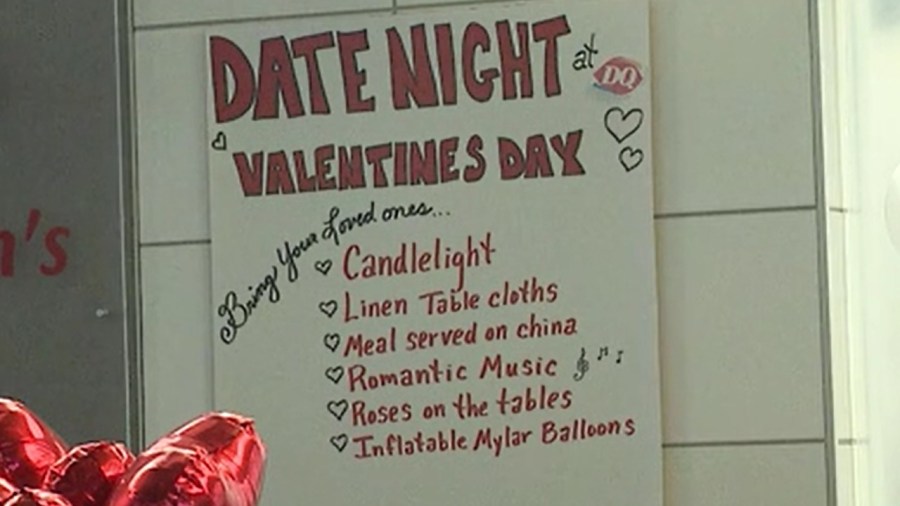 DATE NIGHT at DQ
VALENTINES DAY
Bring Your Loved ones...
Candlelight
Linen Table cloths
Meal served on china
Romantic Music
Roses on the tables
Inflatable Mylar Balloons
n's